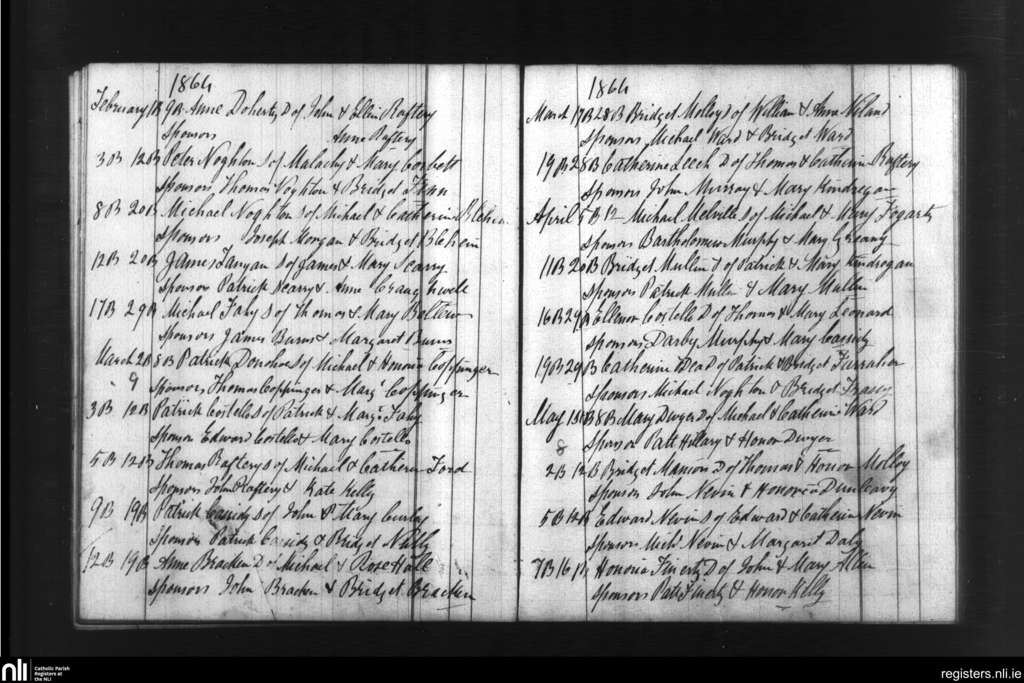 1864
February 1B 9B Anne Doherty D of John & Ellin Raftery
Sponsors Anne Raftery
3B 12B Peter Noghton S of Malachy & Mary Corbett
Sponsors Thomas Noghton & Bridget
8B 20B Michael Noghton S of Michael & Catherine Blehein
Sponsors Joseph Morgan & Bridget Blehein
12B 20B James Lanyan S of James & Mary Scarry
Sponsor Patrick Scarry & Anne Craughwell
17B 29B Michael Fahy S of Thomas & Mary
Sponsors James Burns & Margaret Burns
March 2B 8B Patrick Donohoe S of Michael & Honoria Coppinger
9 Sponsors Thomas Coppinger & Margt Coppinger
3B 10B Patrick Costello S of Patrick & Margt Fahy
Sponsor Edward Costello & Mary Costello
5B 12B Thomas Raftery S of Michael & Catherin Ford
Sponsors John Raftery & Kate Kelly
9B 19B Patrick Cassidy S of John & Mary Curley
Sponsors Patrick Cassidy & Bridget
12B 19B Anne Bracken D of Michael & Rose Halle
Sponsors John Bracken & Bridget Bracken
1864
March 17B 28B Bridget Molloy D of William & Anne Niland
Sponsors Michael Ward & Bridget Ward
19B 28B Catherine Leech D of Thomas & Catherin Raftery
Sponsors John Murray & Mary Kindregan
April 5B 12 Michael Melville S of Michael & Mary Fogarty
Sponsors Bartholomew Murphy & Mary
11B 20B Bridget Mullin D of Patrick & Mary Kindregan
Sponsors Patrick Mullin & Mary Mullin
16B 29B Ellenor Costello D of Thomas & Mary Leonard
Sponsors Darby Murphy & Mary Cassidy
19B 29B Catherine Dea D of Patrick & Bridget Farraher
Sponsors Michael Noghton & Bridget
May 1B 8B Mary Dwyer D of Michael & Catherin Ward
8 Sponsor Patt Hillary & Honor Dwyer
2B 12B Bridget Manion D of Thomas & Honor Molloy
Sponsors John Nevin & Honoria Dunleavy
5B 12B Edward Nevin S of Edward & Catherin Nevin
Sponsors Michl Nevin & Margaret Daly
7B 16 Honoria Finerty D of John & Mary Allen
Sponsors Patt Finerty & Honor Kelly
nli
Catholic Parish
Registers at
the NLI
registers.nli.ie